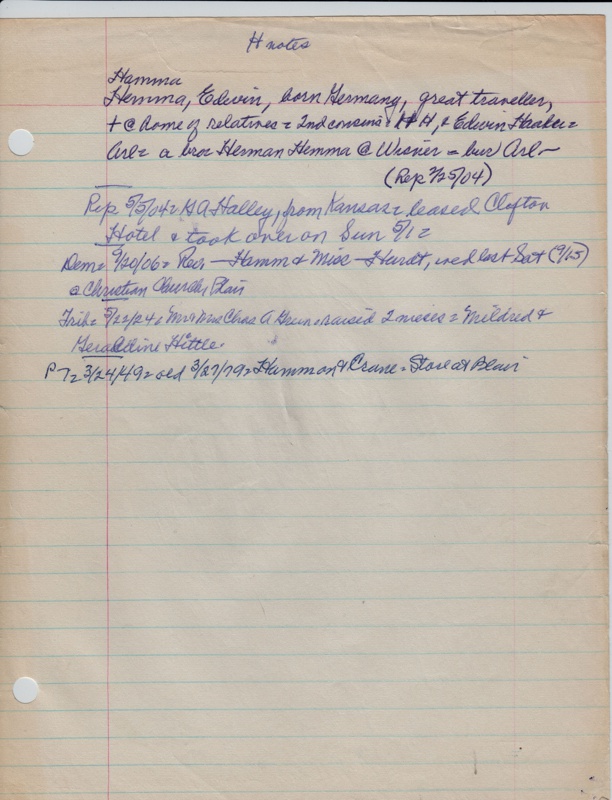 H notes
Hamma
Hemma, Edwin, born Germany, great traveller,
+ @ home of relatives = 2nd cousins = H H, & Edwin Haaker =
Arl = a bro = Herman Hemma @ Wisner = bur Arl -
(Rep 3/25/04)
Rep 5/5/04 = G A Halley, from Kansas = leased Clifton
Hotel & took over on Sun 5/1 =
Dem = 9/20/06 = Rev, — Hamm & Miss — Hardt, wed last Sat (9/15)
@ Christian Church Blair
Trib = 5/22/24 = Mr & Chas A = raised 2 nieces = Mildred &
Geraldine Hittle.
P T = 3/24/49 = old 3/27/79 = Hammon & Crane = Store at Blair